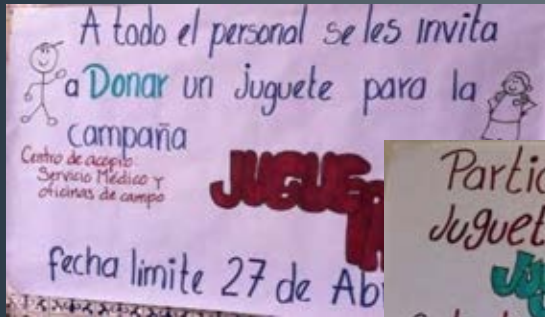 A todo el personal se les invita
a Donar un juguete para la
campaña
Centro de acopio:
Servicio Médico y
oficinas de campo
fecha limite 27 de Ab
Partic
Juguet